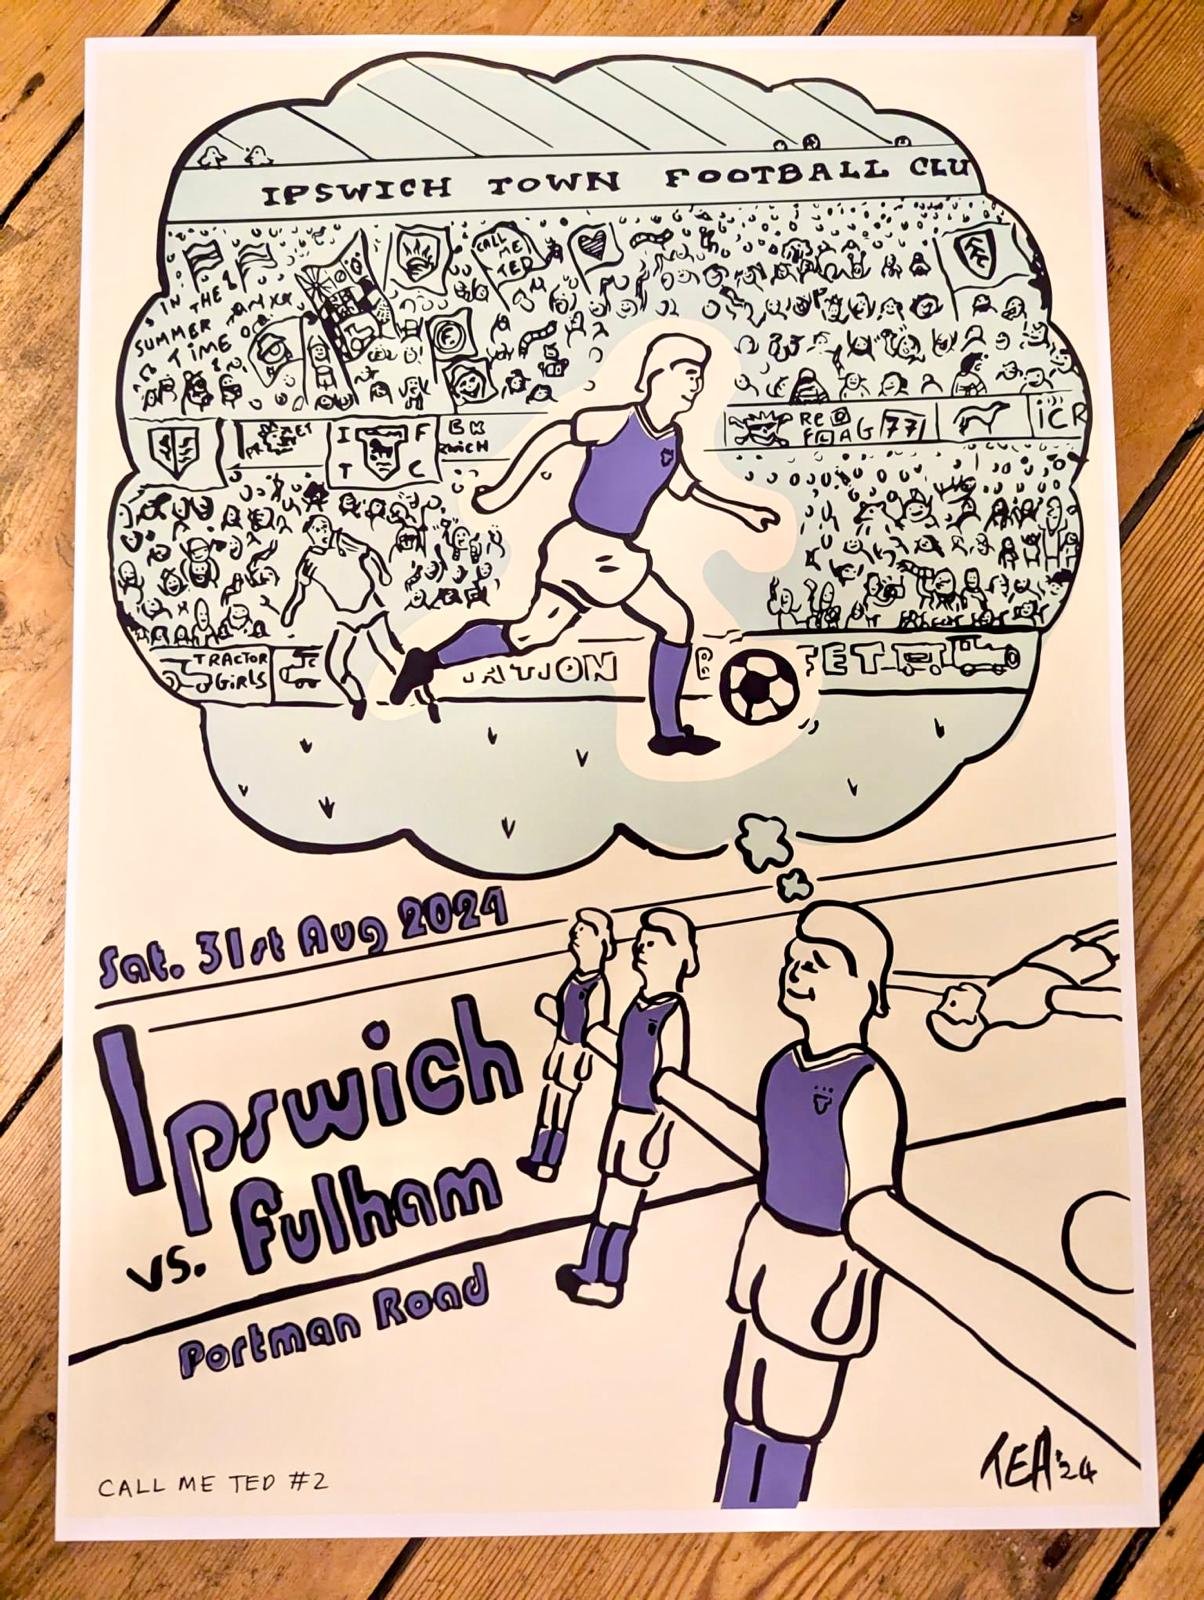 IPSWICH TOWN FOOTBALL CLU
CALL
ME
TED
IN THE
SUMMER
TIME
I F
T C
RED
FLAG 77
ICR
TRACTOR
GIRLS
ATION B FET
Sat. 31st Aug 2024
Ipswich
vs. Fulham
Portman Road
CALL ME TED #2
TEA '24